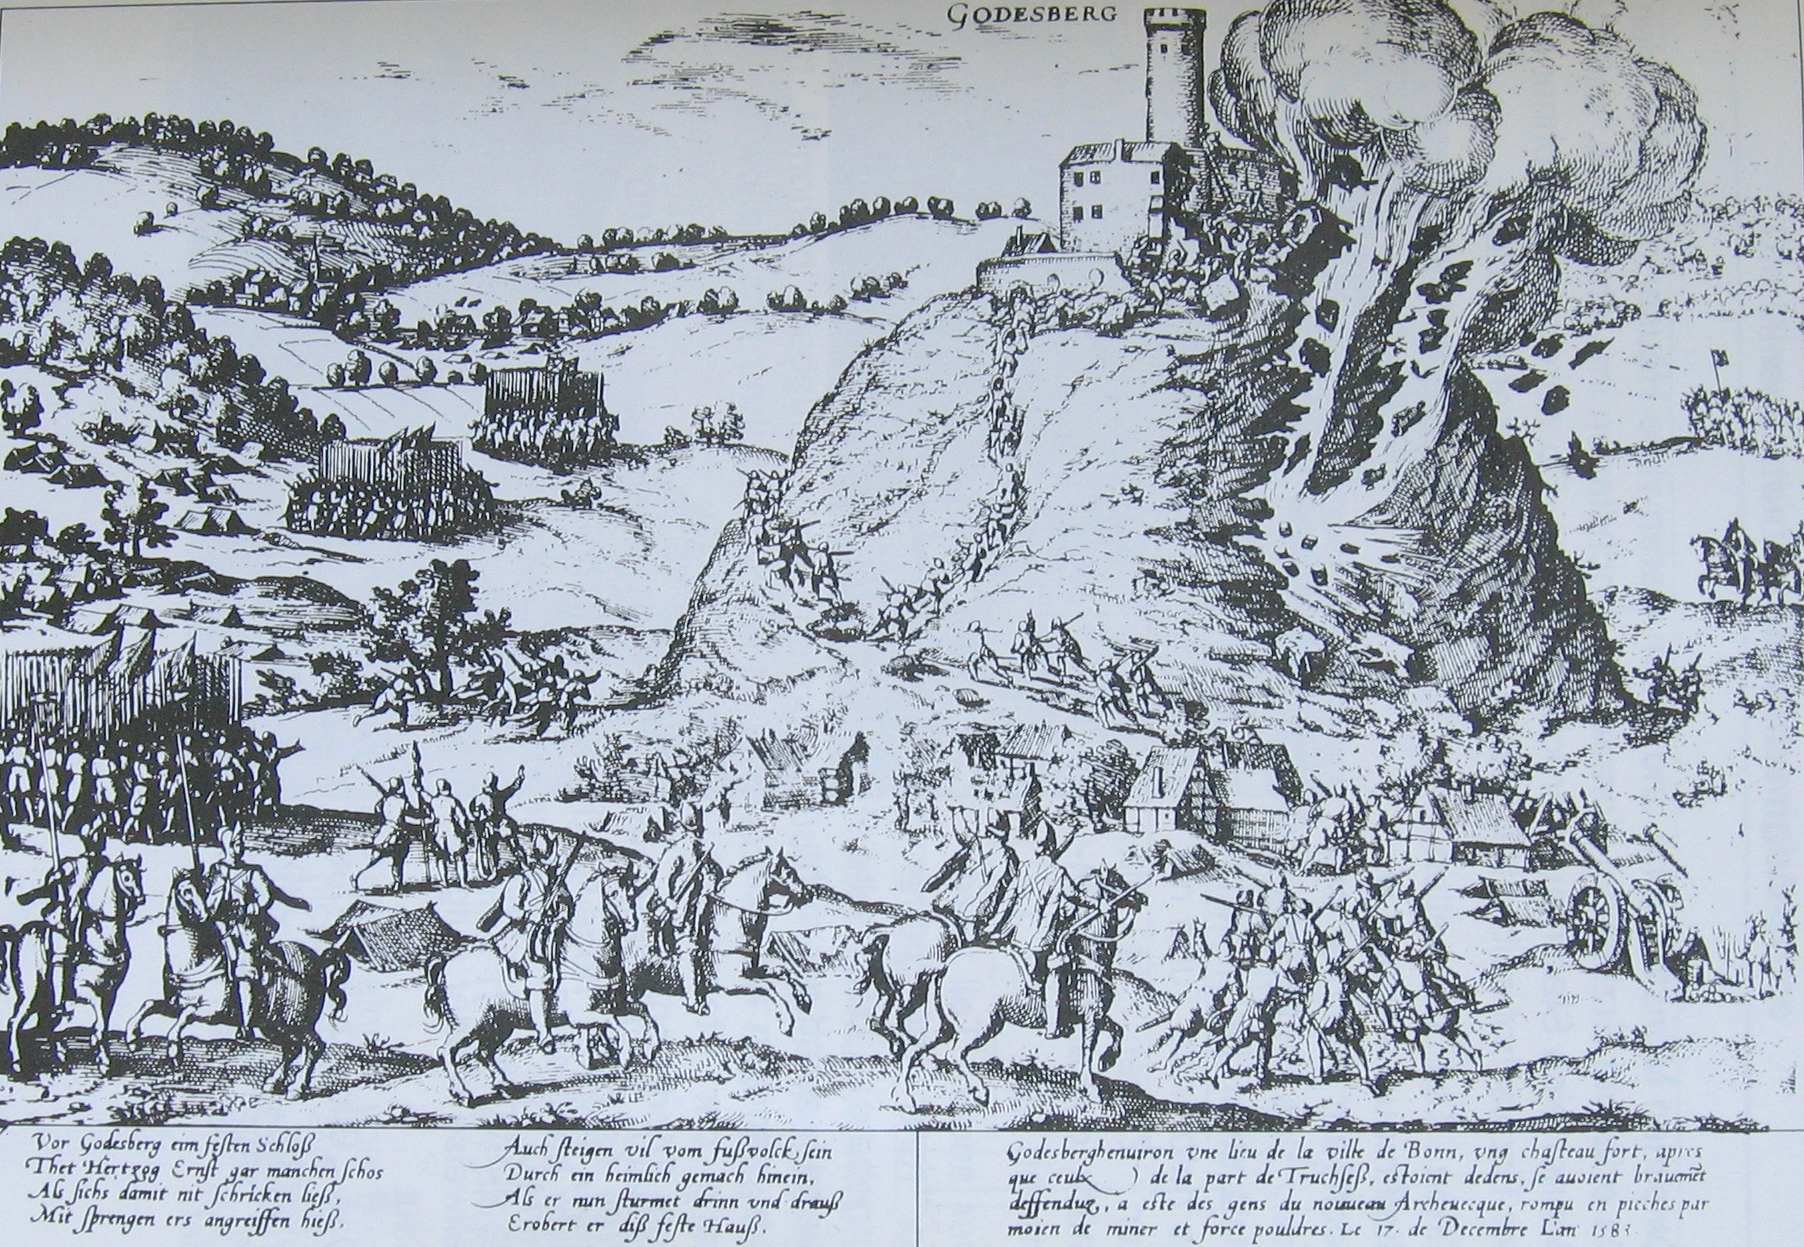 GODESBERG
Vor Godesberg eim festen Schloß
Thet Hertzog Ernst gar manchen schos
Als sichs damit nit schricken ließ,
Mit sprengen ers angreiffen hieß.
Auch steigen vil vom fußvolck sein
Durch ein heimlich gemach hinein,
Als er nun sturmet drinn vnd drauß
Erobert er diß feste Hauß.
Godesberghenuiron vne lieu de la ville de Bonn, vng chasteau fort, apres
que ceulx de la part de Truchseß, estoient dedens, se auoient brauemēt
deffenduz, a este des gens du nouueau Archeuecque, rompu en pieches par
moien de miner et force pouldres. Le 17. de Decembre L'an 1583.